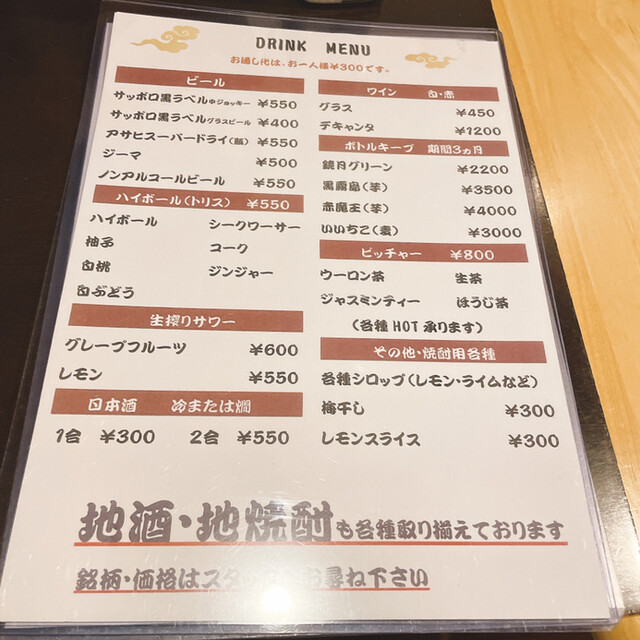 DRINK MENU
お通し代は、お一人様¥300です。
ビール
サッポロ黒ラベル中ジョッキー ¥550
サッポロ黒ラベルグラスビール ¥400
アサヒスーパードライ(瓶) ¥550
ジーマ ¥500
ノンアルコールビール ¥550
ハイボール(トリス) ¥550
ハイボール シークワーサー
柚子 コーク
白桃 ジンジャー
白ぶどう
生搾りサワー
グレープフルーツ ¥600
レモン ¥550
日本酒 冷または燗
1合 ¥300 2合 ¥550
ワイン 白・赤
グラス ¥450
デキャンタ ¥1200
ボトルキープ 期間3ヵ月
鏡月グリーン ¥2200
黒霧島(芋) ¥3500
赤魔王(芋) ¥4000
いいちこ(麦) ¥3000
ピッチャー ¥800
ウーロン茶 生茶
ジャスミンティー ほうじ茶
(各種HOT承ります)
その他・焼酎用各種
各種シロップ(レモン・ライムなど)
梅干し ¥300
レモンスライス ¥300
地酒・地焼酎も各種取り揃えております
銘柄・価格はスタッフにお尋ね下さい